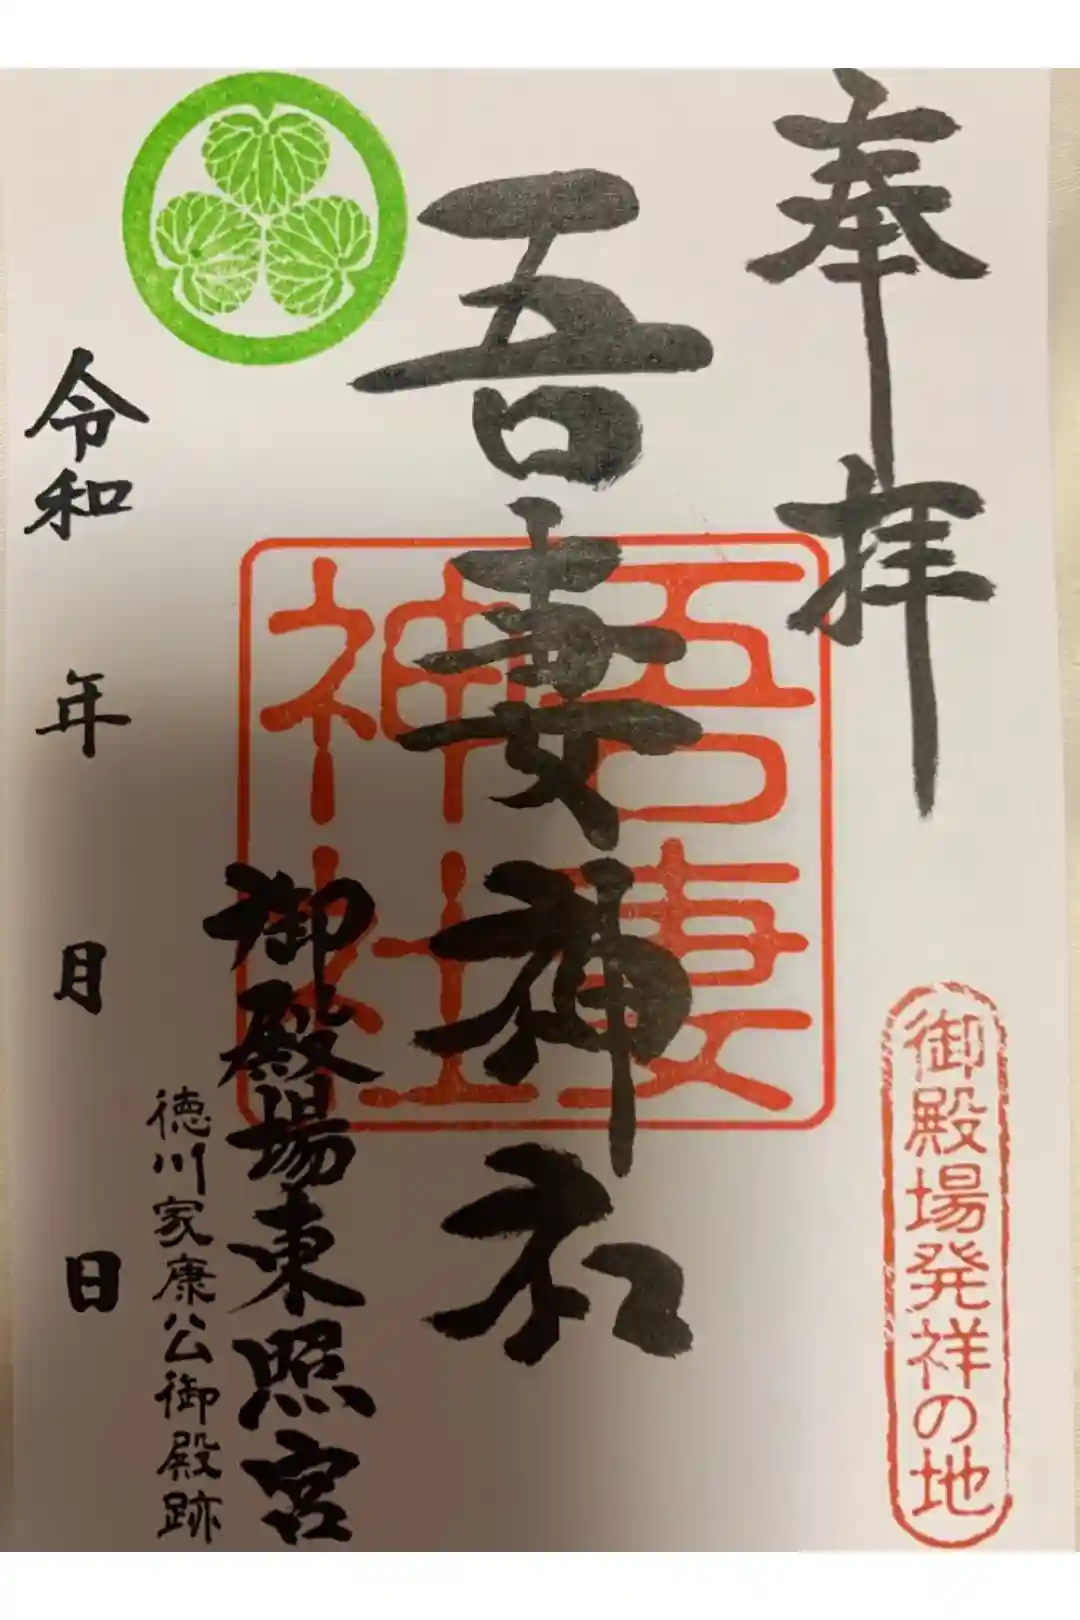 奉拝
御殿場発祥の地
吾妻神社
吾妻
神社
御殿場東照宮
徳川家康公御殿跡
令和　年　月　日